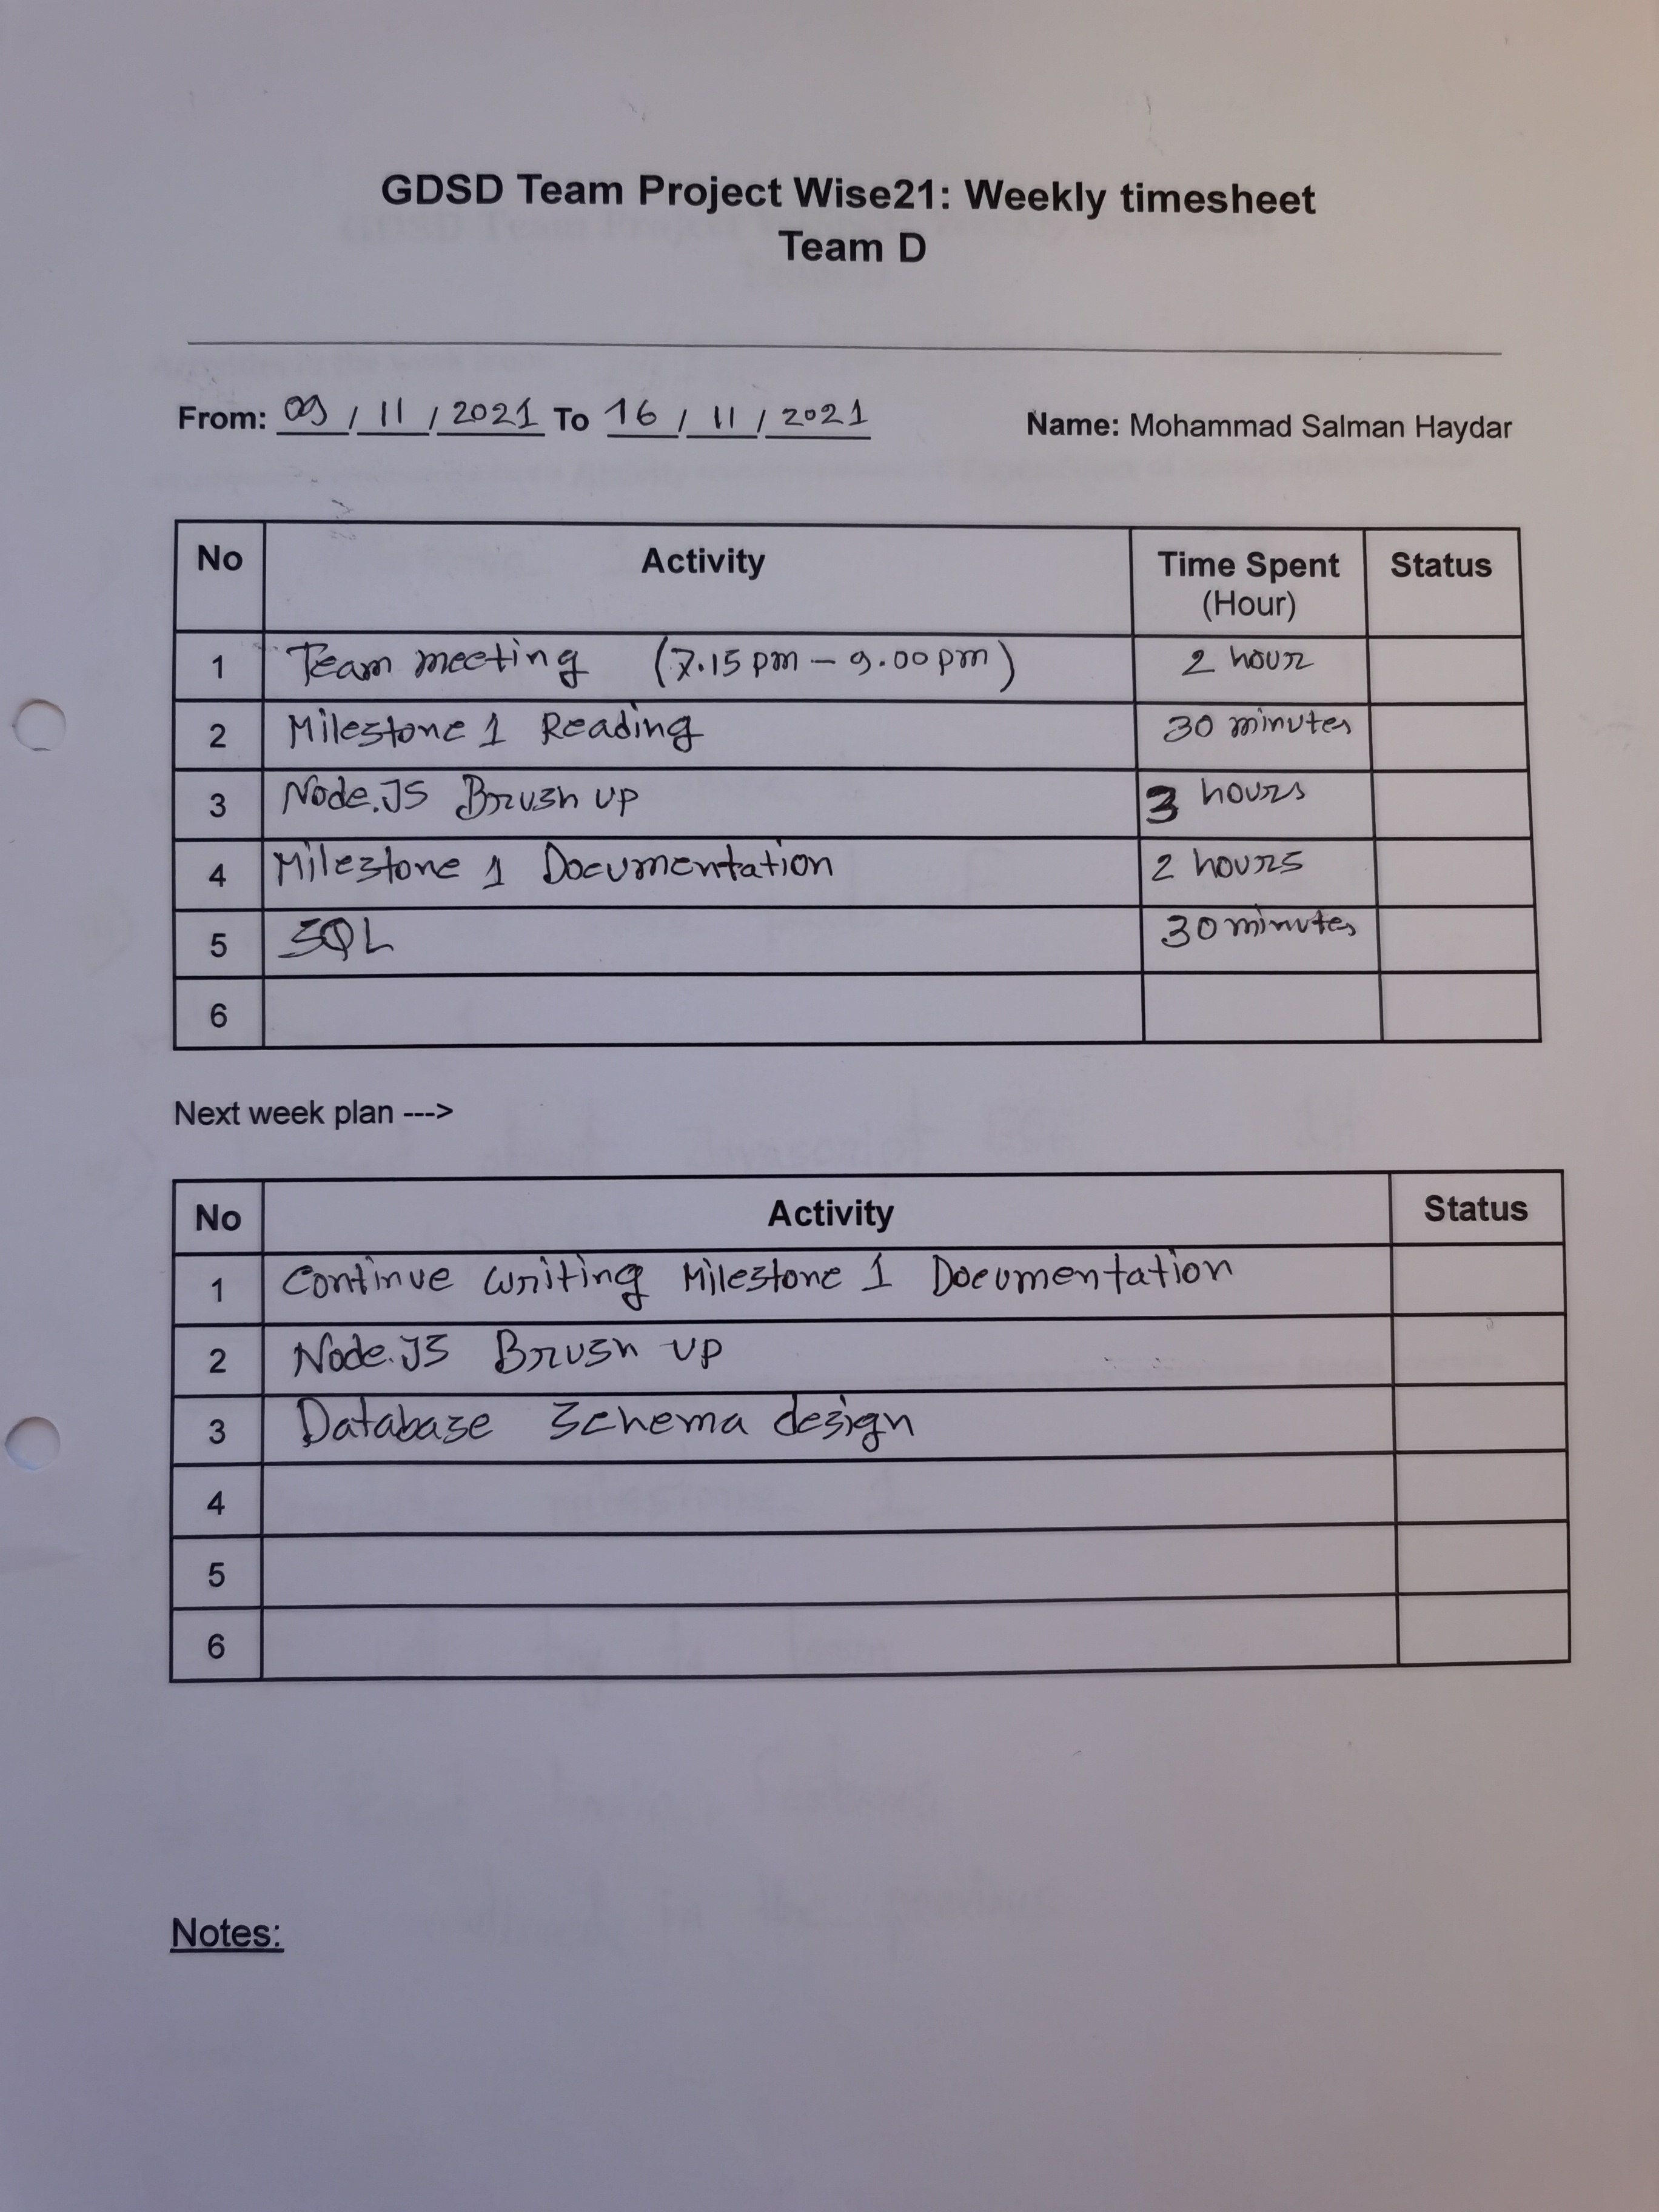 GDSD Team Project Wise21: Weekly timesheet
Team D
From: 09 / 11 / 2021 To 16 / 11 / 2021 Name: Mohammad Salman Haydar
No Activity Time Spent (Hour) Status
1 Team meeting (7.15 pm – 9.00 pm) 2 hour
2 Milestone 1 Reading 30 minutes
3 Node.JS Brush up 3 hours
4 Milestone 1 Documentation 2 hours
5 SQL 30 minutes
6
Next week plan --->
No Activity Status
1 Continue writing Milestone 1 Documentation
2 Node.JS Brush up
3 Database Schema design
4
5
6
Notes: